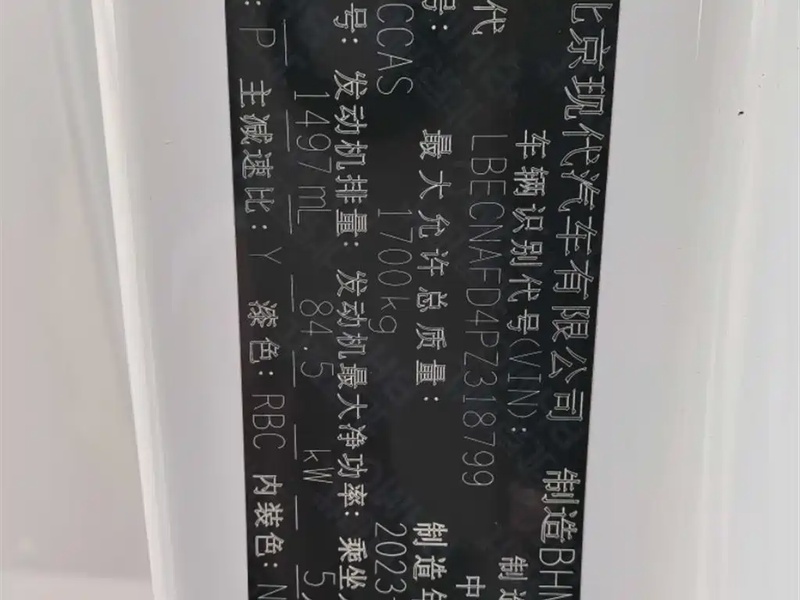 北京现代汽车有限公司 制造BHM
车辆识别代号(VIN): 制造
LBECNAFD4PZ318799 中
代号: 最大允许总质量: 制造
CCAS 1700kg 2023
号: 发动机排量: 发动机最大净功率: 乘坐
1497mL 84.5 kW 5
: P 主减速比: Y 漆色: RBC 内装色: N